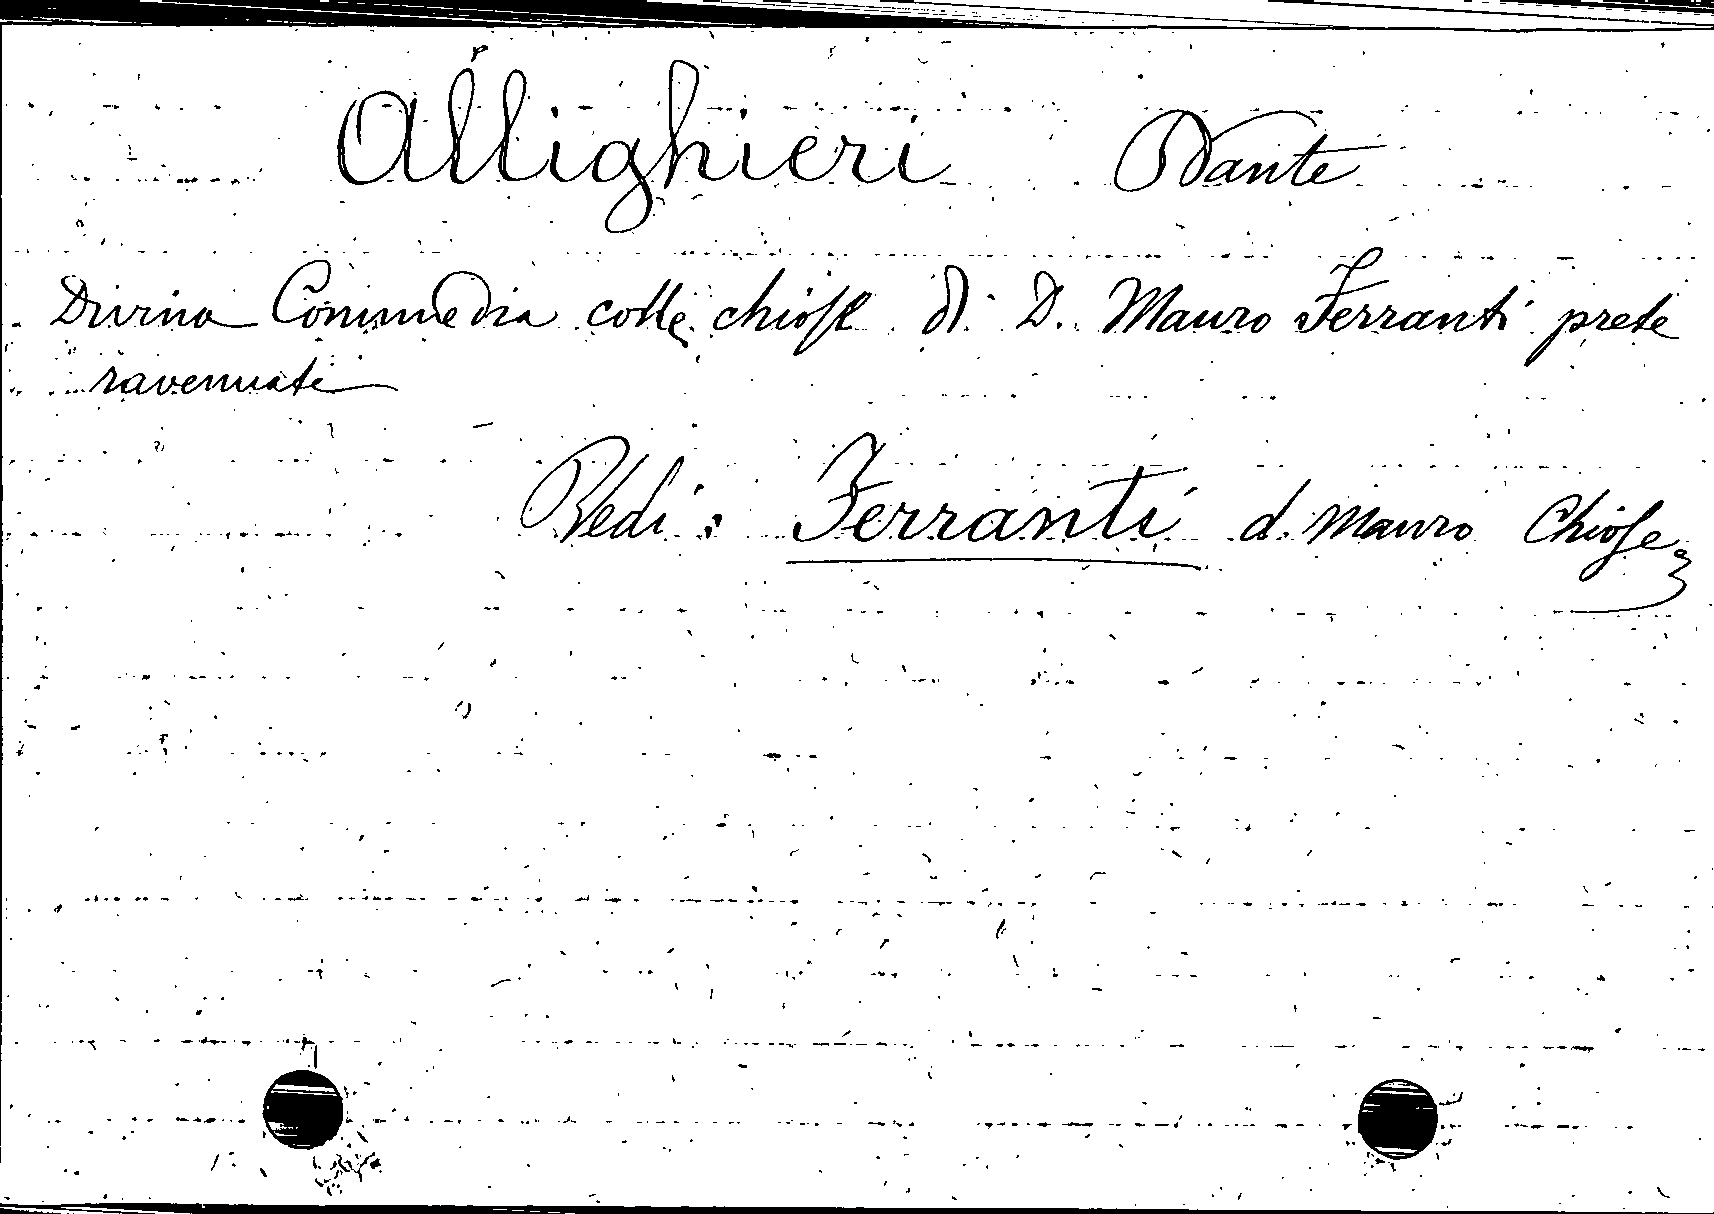 Allighieri Dante
Divina Commedia colle chiose di D. Mauro Ferranti prete
ravennate
Vedi: Ferranti d. Mauro Chiose